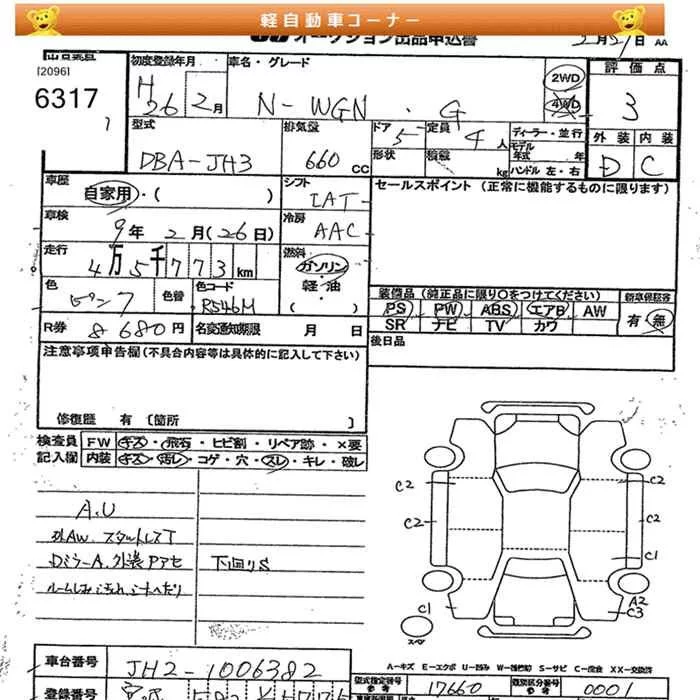 軽自動車コーナー
オークション出品申込書
2月21日 AA
出品番号
[2096]
6317
初度登録年月
H 26 2月
車名・グレード
N-WGN ・ G
2WD
4WD
評価点
3
外装 内装
D C
型式
DBA-JH3
排気量
660 CC
ドア 5
形状
定員 4人
積載 kg
ディーラー・並行
モデル年式 年
ハンドル 左・右
車歴
自家用・( )
シフト
IAT
セールスポイント (正常に機能するものに限ります)
車検
9年 2月(26日)
冷房
AAC
走行
4万5千773km
燃料
ガソリン・軽油
( )
色
ピンク
色替
色コード
R546M
装備品(純正品に限り○をつけてください)
PS PW ABS エアB AW
SR ナビ TV カワ
新車保証書
有・無
R券 8680円
名変通知期限 月 日
後日品
注意事項申告欄(不具合内容等は具体的に記入して下さい)
修復歴 有 〔箇所 〕
検査員記入欄
FW キズ・飛石・ヒビ割・リペア跡・×要
内装 キズ・汚レ・コゲ・穴・スレ・キレ・破レ
A.U
社AW.スタットレスT
DミラーA、外装Pアセ
ルームしみ汚れ、シートへたり
下回りS
C2
C2
C2
C2
C1
A2
C3
C1
スペア
A-キズ E-エクボ U-凹み W-補修跡 S-サビ C-腐食 XX-交換済
車台番号
JH2-1006382
型式指定番号
参考
17660
類別区分番号
参考
0001
登録番号